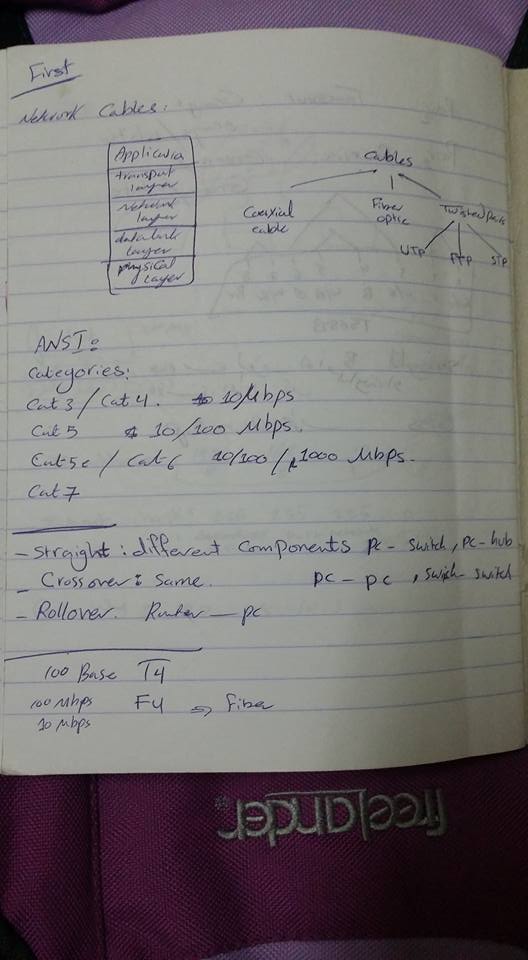 First
Network Cables:
Application
transport layer
Network layer
datalink layer
physical layer
Cables
Coaxial cable
Fiber optic
Twisted pairs
UTP FTP STP
ANSI:
Categories:
Cat3 / Cat4. 10Mbps
Cat5 10/100 Mbps.
Cat5e / Cat6 10/100/1000 Mbps.
Cat7
- Straight: different Components PC - Switch, PC-hub
- Crossover: Same. PC - PC, Switch - Switch
- Rollover. Router - PC
100 Base T4
100 Mbps F4 => Fiber
10 Mbps
freelander